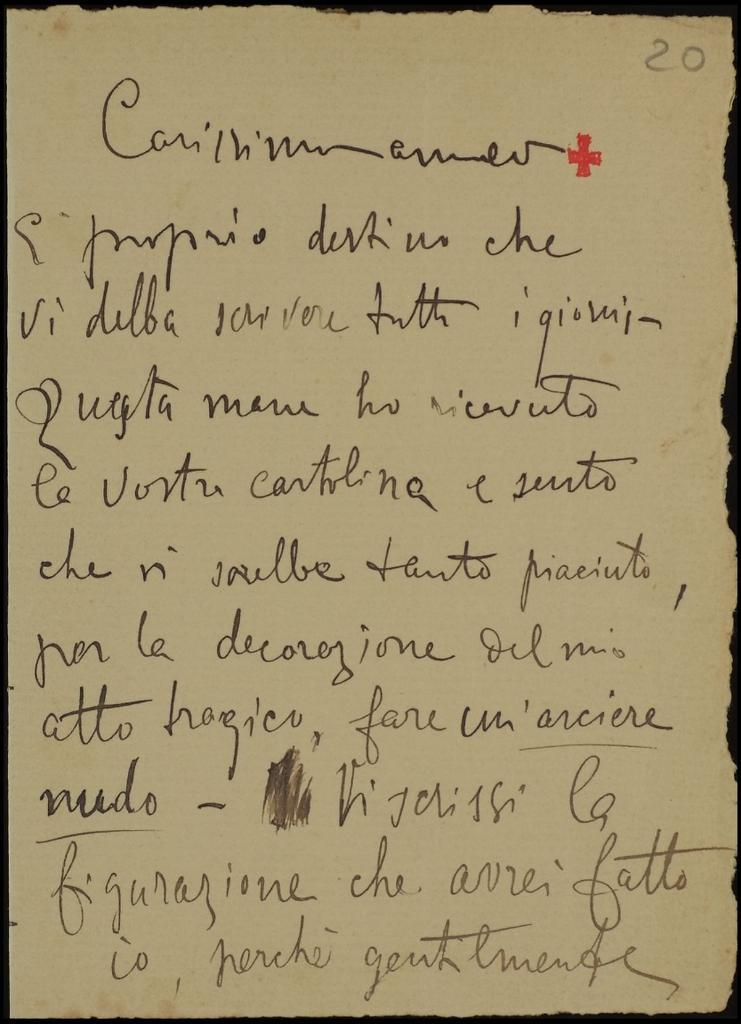 20
Carissimo amico
E' proprio destino che
vi debba scrivere tutti i giorni –
Questa mane ho ricevuto
la vostra cartolina e sento
che vi sarebbe tanto piaciuto,
per la decorazione del mio
atto tragico, fare un'arciere
nudo – Vi scrissi la
figurazione che avrei fatto
io, perchè gentilmente